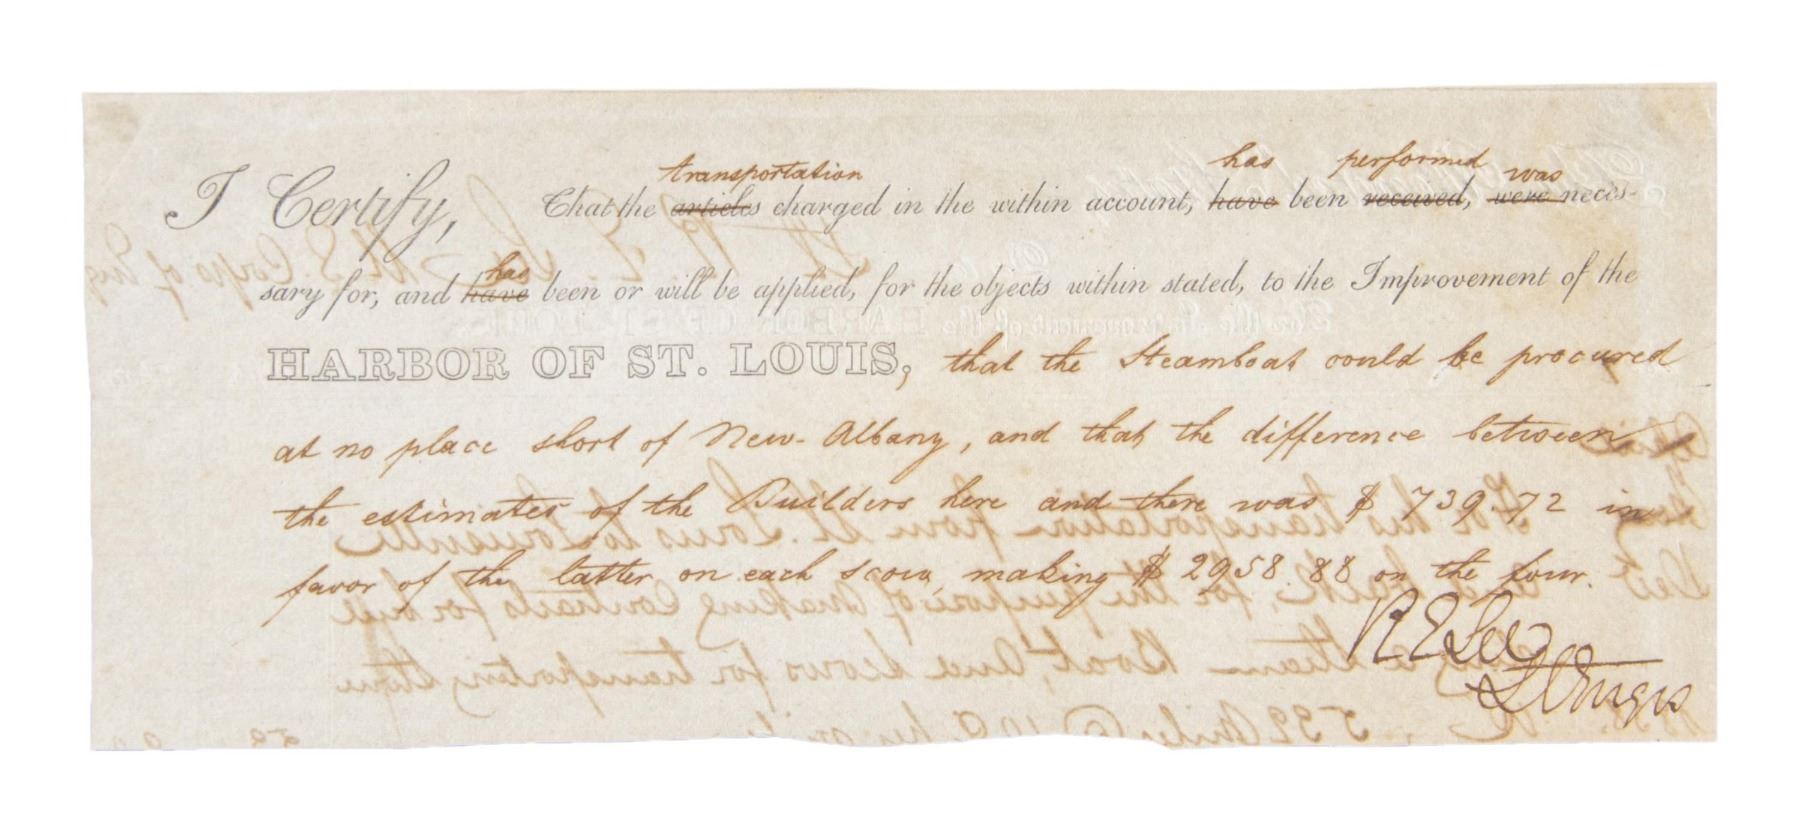 transportation has performed was
I Certify, That the articles charged in the within account, have been received, were neces-
has
sary for, and have been or will be applied, for the objects within stated, to the Improvement of the
HARBOR OF ST. LOUIS, that the Steamboat could be procured
at no place short of New-Albany, and that the difference between
the estimates of the Builders here and there was $ 739.72 in
favor of the latter on each scow, making $ 2958.88 on the four.
R E Lee
Lt Engrs